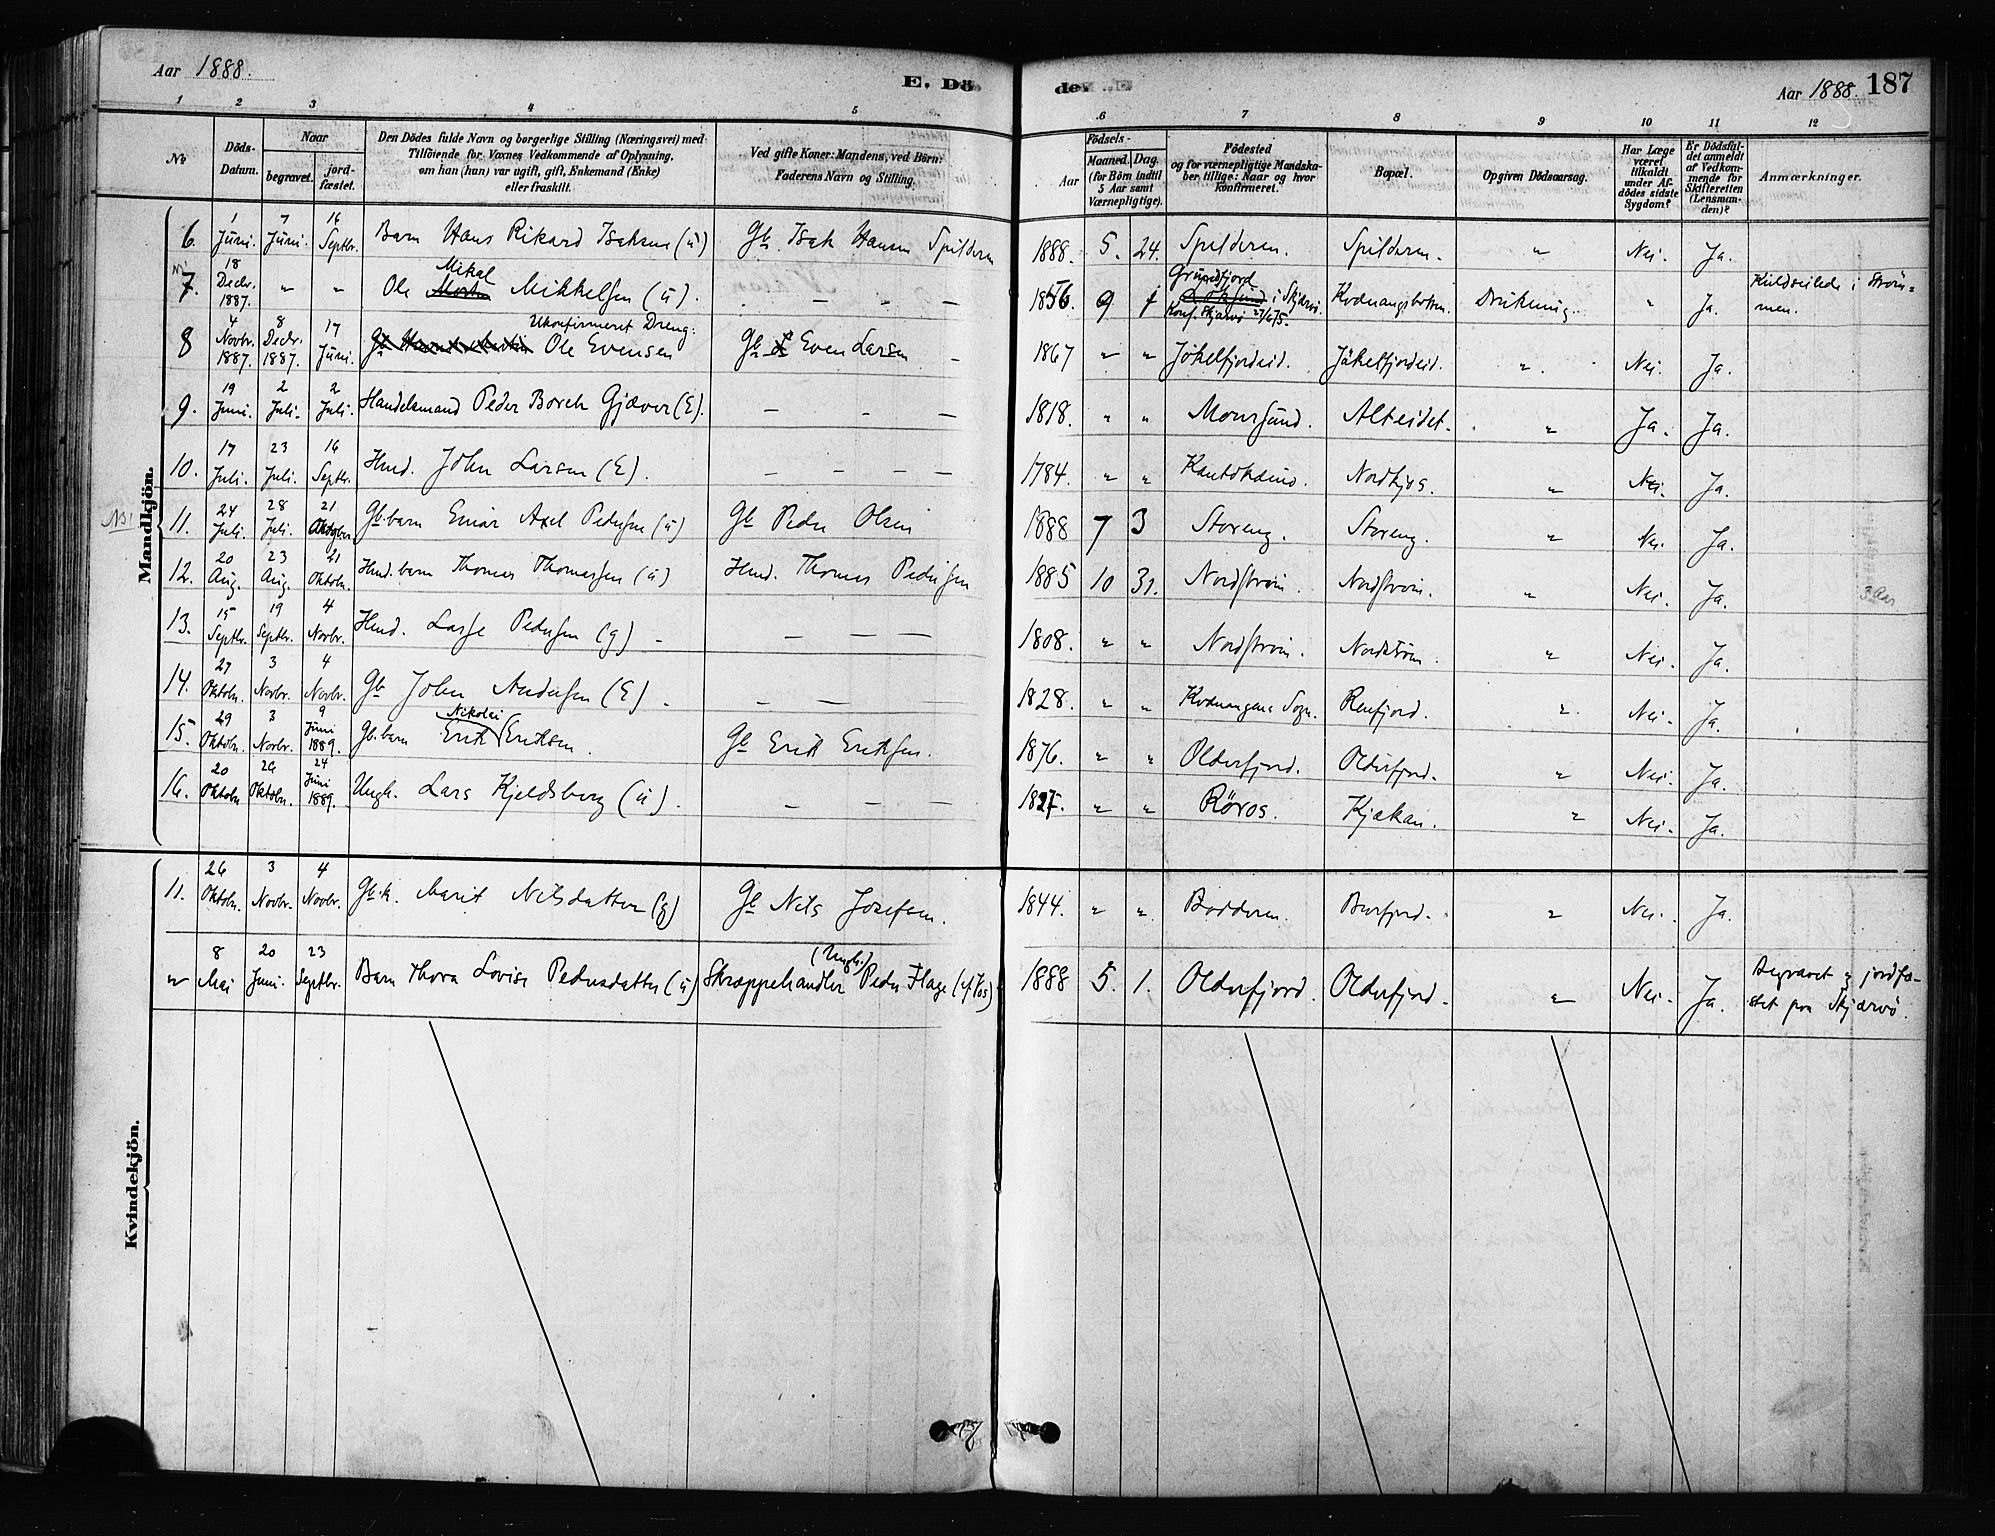 Aar 1888.
E. Dö
de.
Aar 1888. 187
1 2 3 4 5 6 7 8 9 10 11 12
No
Döds-
Datum.
Naar
begravet. jord-
fæstet.
Den Dödes fulde Navn og borgerlige Stilling (Næringsvei) med
Tilföiende for Voxnes Vedkommende af Oplysning,
om han (hun) var ugift, gift, Enkemand (Enke)
eller fraskilt.
Ved gifte Koner: Mandens, ved Börn:
Faderens Navn og Stilling.
Födsels-
Aar
Maaned. Dag.
(for Börn indtil
5 Aar samt
Værnepligtige).
Födested
og for værnepligtige Mandska-
ber tillige: Naar og hvor
konfirmeret.
Bopæl.
Opgiven Dödsaarsag.
Har Læge
været
tilkaldt
under Af-
dödes sidste
Sygdom?
Er Dödsfal-
det anmeldt
af Vedkom-
mende for
Skifteretten
(Lensman-
den)?
Anmærkninger.
Mandkjön.
6. 1 Juni. 7 Juni. 16 Septbr. Barn Hans Rikard Isaksen (u) Gb. Isak Hansen Spilderen 1888. 5. 24. Spilderen. Spilderen. " Nei. Ja.
7. 18 Decbr. 1887. " " Ole Morten Mikal Mikkelsen (u). — — — 1856. 9 Grundfjord i Skjærvö. Konf. Skjærvö 27/6 75. Kvænangsbotten. Drukning. " Ja. Kuldseilede i Ström-
men.
8 4 Novbr. 1887. 8 Decbr. 1887. 17 Juni. Ukonfirmeret Dreng: Ole Evensen Gb Even Larsen — 1867 " " Jökelfjordeid. Jökelfjordeid. " Nei. Ja.
9. 19 Juni. 2 Juli. 2 Juli. Handelsmand Peder Borch Gjæver (E). — — — 1818. " " Maursund. Alteidet. " Ja. Ja.
10. 17 Juli. 23 Juli. 16 Septbr. Hmd. John Larsen (E). — — — 1784. " " Kautokeino. Nordkjos. " Nei. Ja.
NB! 11. 24 Juli. 28 Juli. 21 Oktober Gb.barn Einar Axel Pedersen (u) Gb Peder Olsen 1888 7 3 Storeng. Storeng. " Nei. Ja.
12. 20 Aug. 23 Aug. 21 Oktobr. Hmd.barn Thomas Thomassen (u) Hmd. Thomas Pedersen 1885 10 31. Nordström. Nordström. " Nei. Ja. 3 Aar
13. 15 Septbr. 19 Septbr. 4 Novbr. Hmd. Lasse Pedersen (g) — — — 1808. " " Nordström. Nordström. " Nei. Ja.
14. 27 Oktobr. 3 Novbr. 4 Novbr. Gb John Andersen (E). — — 1828. " " Kvænangens Sogn. Renfjord. " Nei. Ja.
15. 29 Oktobr. 3 Novbr. 9 Juni 1889. Gb.barn Erik Nikolai Eriksen. Gb Erik Eriksen. 1876. " " Olderfjord. Olderfjord. " Nei. Ja.
16. 20 Oktobr. 29 Oktobr. 24 Juni 1889. Ungk. Lars Kjeldsberg (u). — — — 1827. " " Röros. Kjækan. " Nei. Ja.
Kvindekjön.
11. 26 Oktobr. 3 Novbr. 4 Novbr. Gb.k. Marit Nilsdatter (g) Gb Nils Josefsen. 1844. " " Badderen. Burfjord. " Nei. Ja.
8 Mai 20 Juni. 23 Septbr. Barn Thora Lovise Pedersdatter (u) Skræppehandler (Ungk.) Peder Flage (af Vos) 1888 5. 1. Olderfjord. Olderfjord. " Nei. Ja. Begravet og jordfæ-
stet paa Skjærvö.